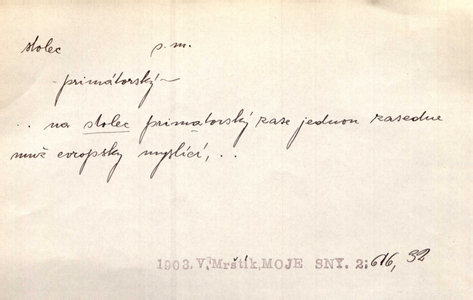 stolec s. m.
-primátorský~
.. na stolec primátorský zase jednou zasedne
muž evropsky myslící, ..
1903. V. Mrštík, MOJE SNY. 2; 616, 32